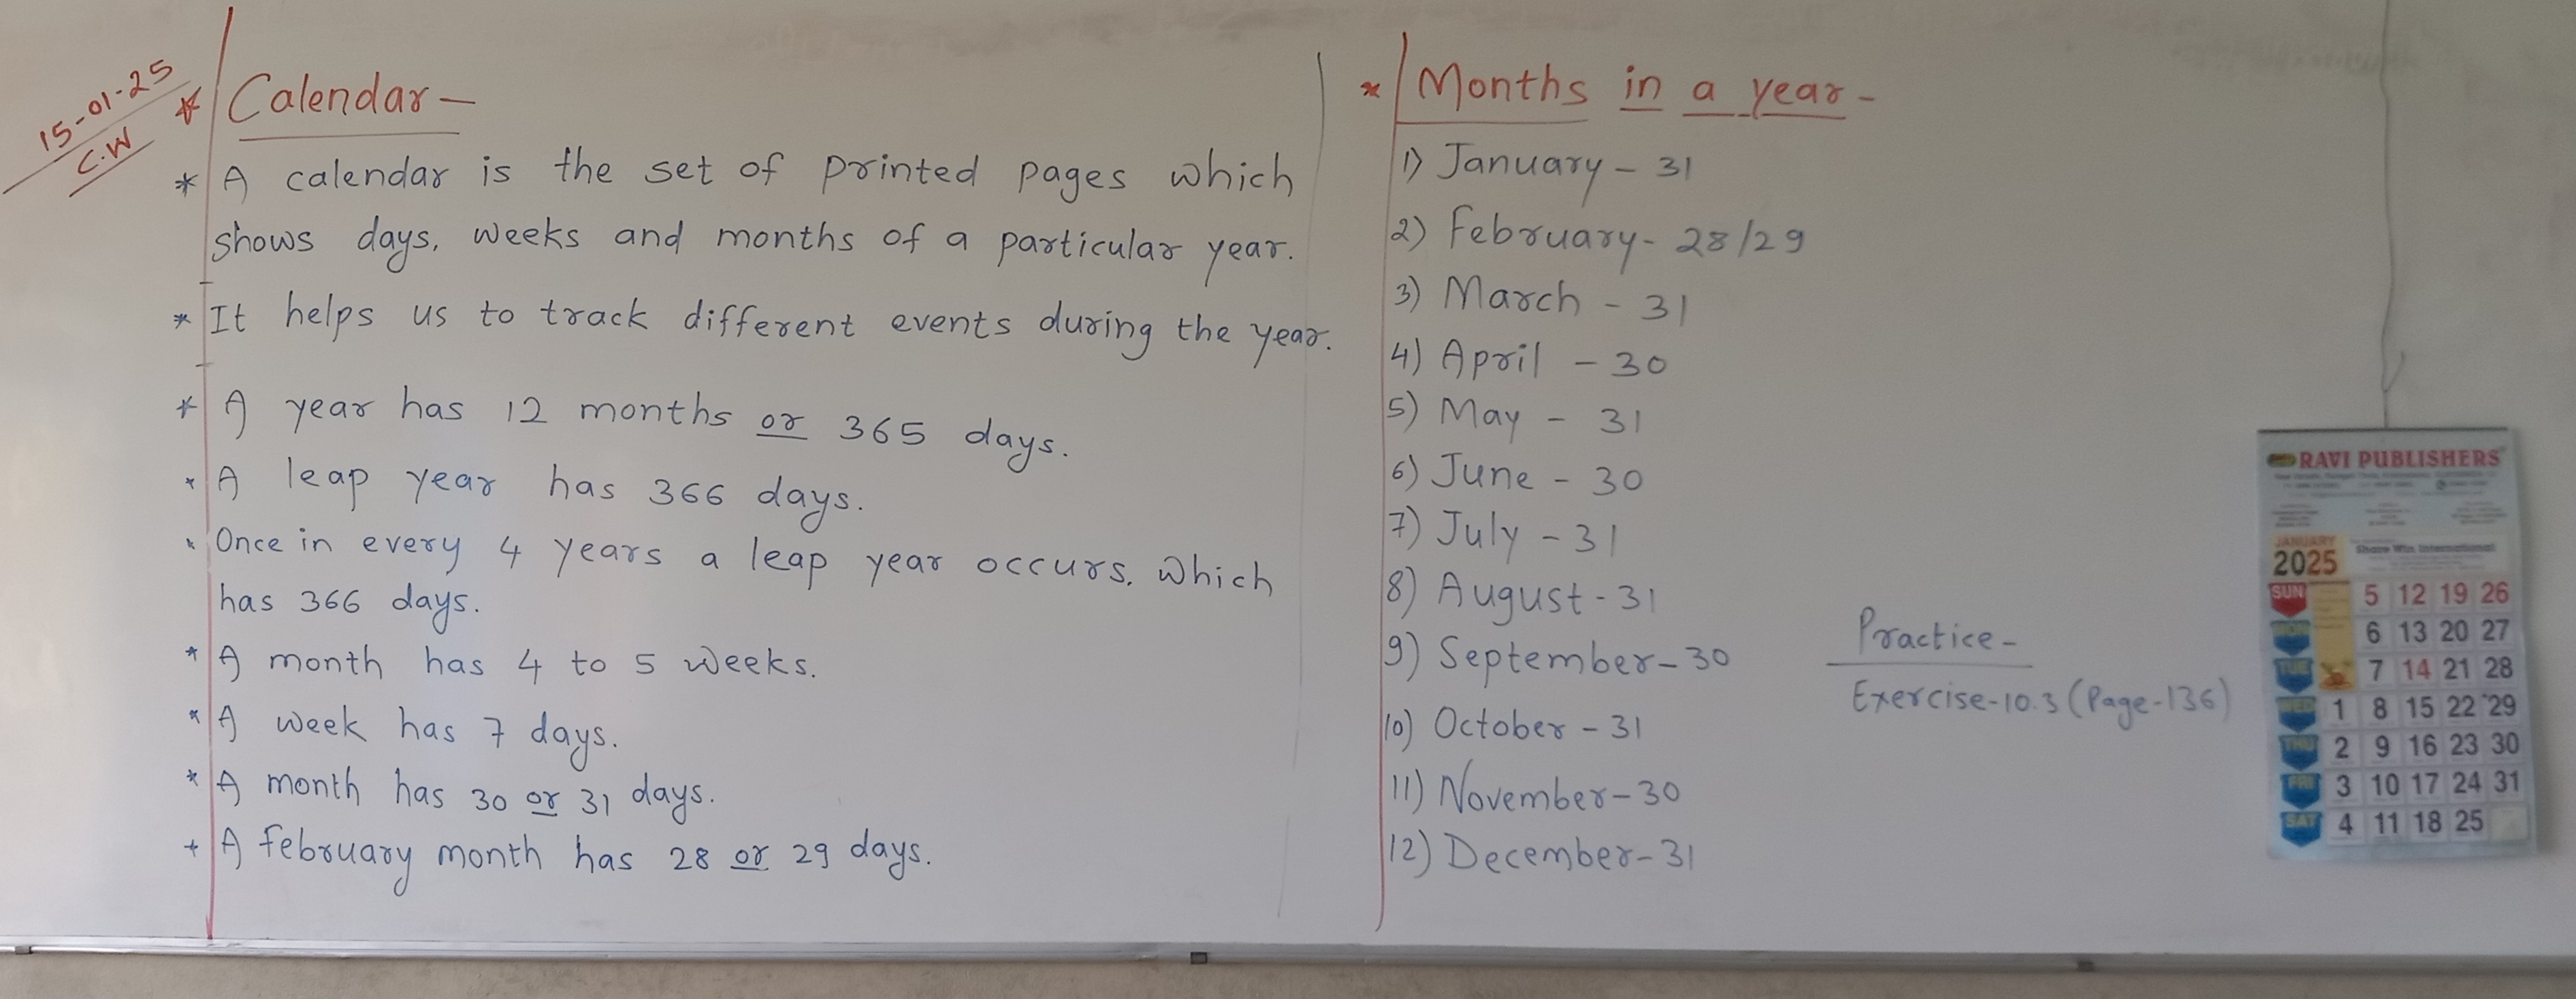 15-01-25
C.W
* Calendar-
* A calendar is the set of printed pages which
shows days, weeks and months of a particular year.
* It helps us to track different events during the year.
* A year has 12 months or 365 days.
* A leap year has 366 days.
* Once in every 4 years a leap year occurs, which
has 366 days.
* A month has 4 to 5 weeks.
* A week has 7 days.
* A month has 30 or 31 days.
* A february month has 28 or 29 days.
* Months in a year-
1) January - 31
2) February - 28/29
3) March - 31
4) April - 30
5) May - 31
6) June - 30
7) July - 31
8) August - 31
9) September - 30
10) October - 31
11) November - 30
12) December - 31
Practice-
Exercise-10.3 (Page-136)
RAVI PUBLISHERS
JANUARY
2025
Share Win International
SUN 5 12 19 26
MON 6 13 20 27
TUE 7 14 21 28
WED 1 8 15 22 29
THU 2 9 16 23 30
FRI 3 10 17 24 31
SAT 4 11 18 25